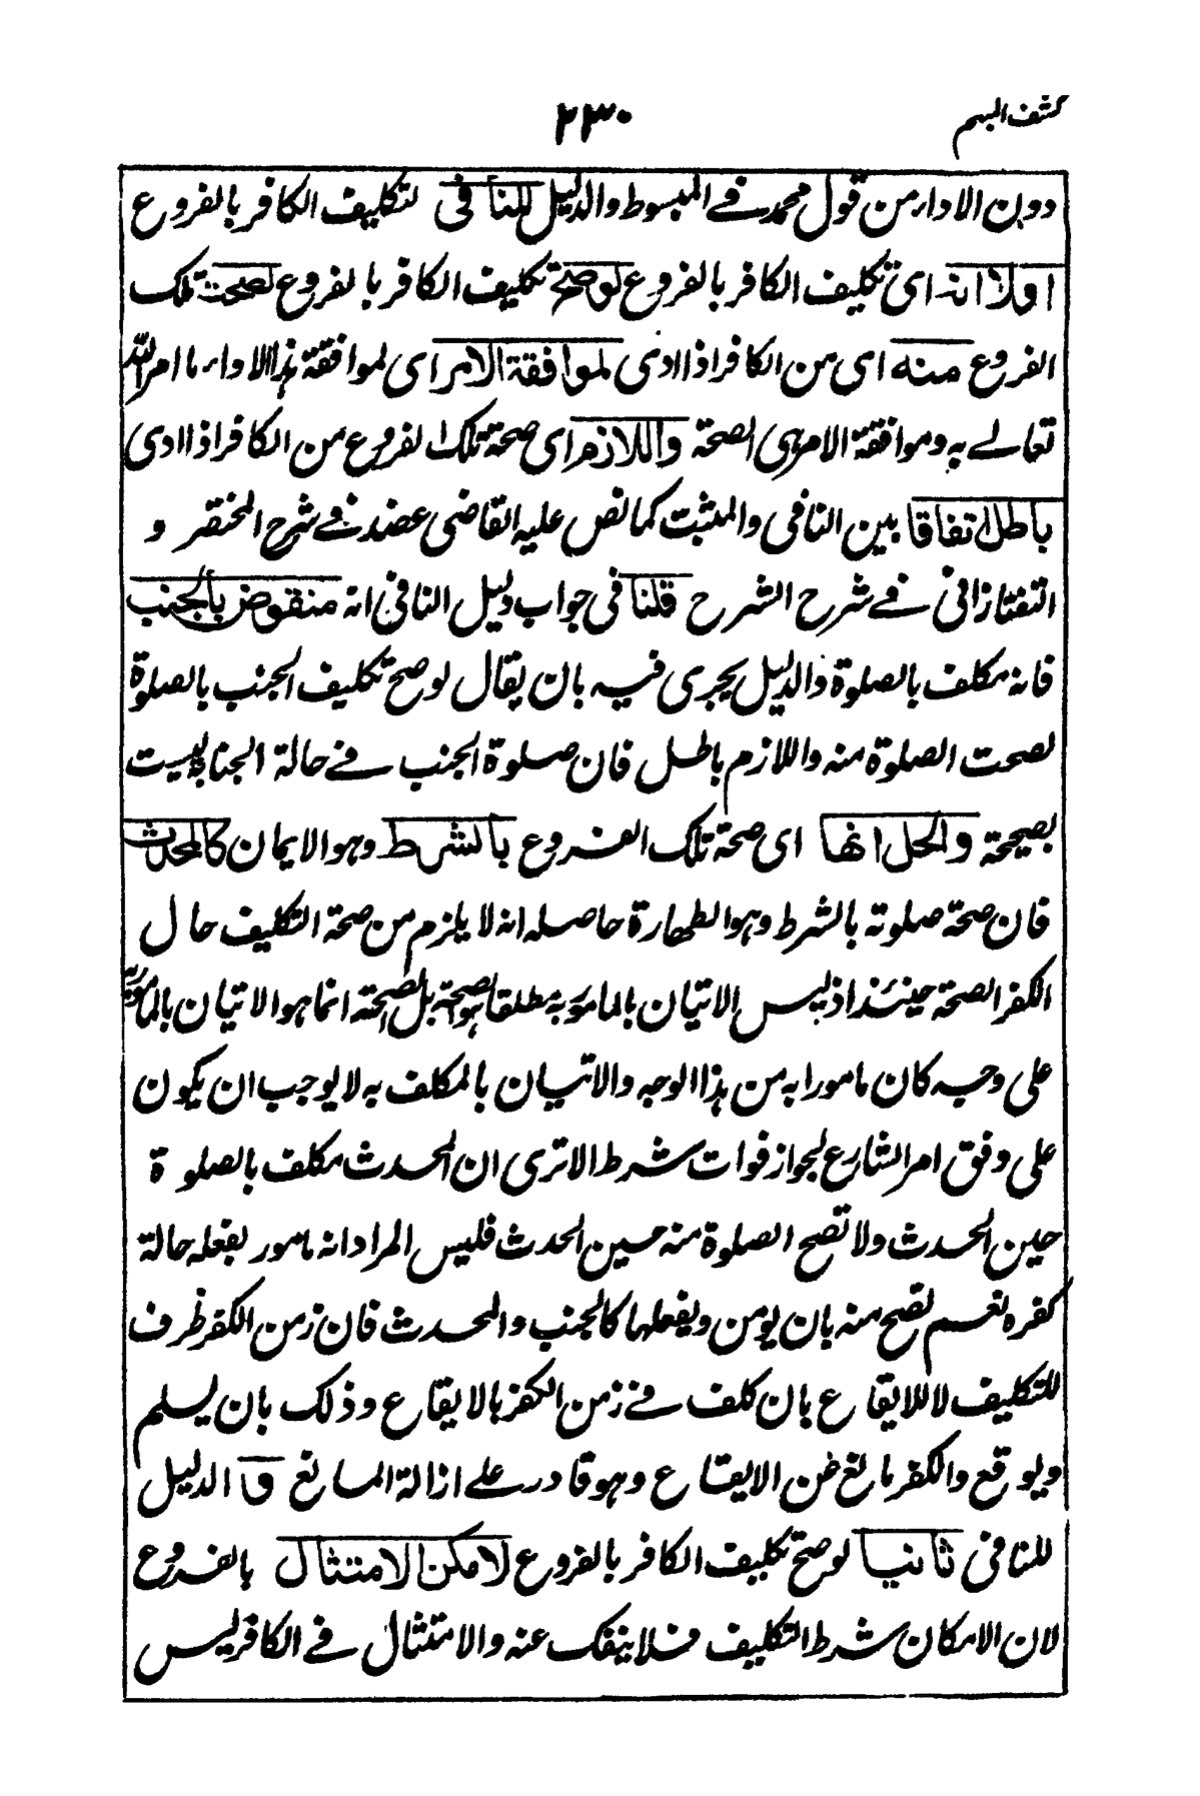 كشف المبهم
٢٣٠
دون الاداء من قول محمد في المبسوط والدليل للنافى لتكليف الكافر بالفروع
اولا انه اى تكليف الكافر بالفروع لوصح تكليف الكافر بالفروع لصحت تلك
الفروع منه اى من الكافر اذا ادى لموافقة الامر اى لموافقة هذا الاداء ما امر الله
تعالى به وموافقة الامر هى الصحة واللازم اى صحة تلك الفروع من الكافر اذا ادى
باطل اتفاقا بين النافى والمثبت كما نص عليه القاضى عضد في شرح المختصر و
التفتازانى في شرح الشرح قلنا فى جواب دليل النافى انه منقوض بالجنب
فانه مكلف بالصلوة والدليل يجرى فيه بان يقال لو صح تكليف الجنب بالصلوة
لصحت الصلوة منه واللازم باطل فان صلوة الجنب في حالة الجنابة ليست
بصيحة والحل انها اى صحة تلك الفروع بالشرط وهو الايمان كالمحدث
فان صحة صلوته بالشرط وهو الطهارة حاصله انه لا يلزم من صحة التكليف حال
الكفر الصحة حينئذ اذ ليس الاتيان بالمامور به مطلقا هو الصحة بل الصحة انما هو الاتيان بالمامور به
على وجه كان مامورا به من هذا الوجه والاتيان بالمكلف به لا يوجب ان يكون
على وفق امر الشارع لجواز فوات شرط الا ترى ان المحدث مكلف بالصلوة
حين الحدث ولا تصح الصلوة منه حين الحدث فليس المراد انه مامور بفعله حالة
كفره نعم تصح منه بان يومن ويفعلها كالجنب والمحدث فان زمن الكفر ظرف
للتكليف لا للايقاع بان كلف في زمن الكفر بالايقاع وذلك بان يسلم
ويوقع والكفر مانع عن الايقاع وهو قادر على ازالة المانع و الدليل
للنافى ثانيا لو صح تكليف الكافر بالفروع لامكن الامتثال بالفروع
لان الامكان شرط التكليف فلا ينفك عنه والامتثال في الكافر ليس